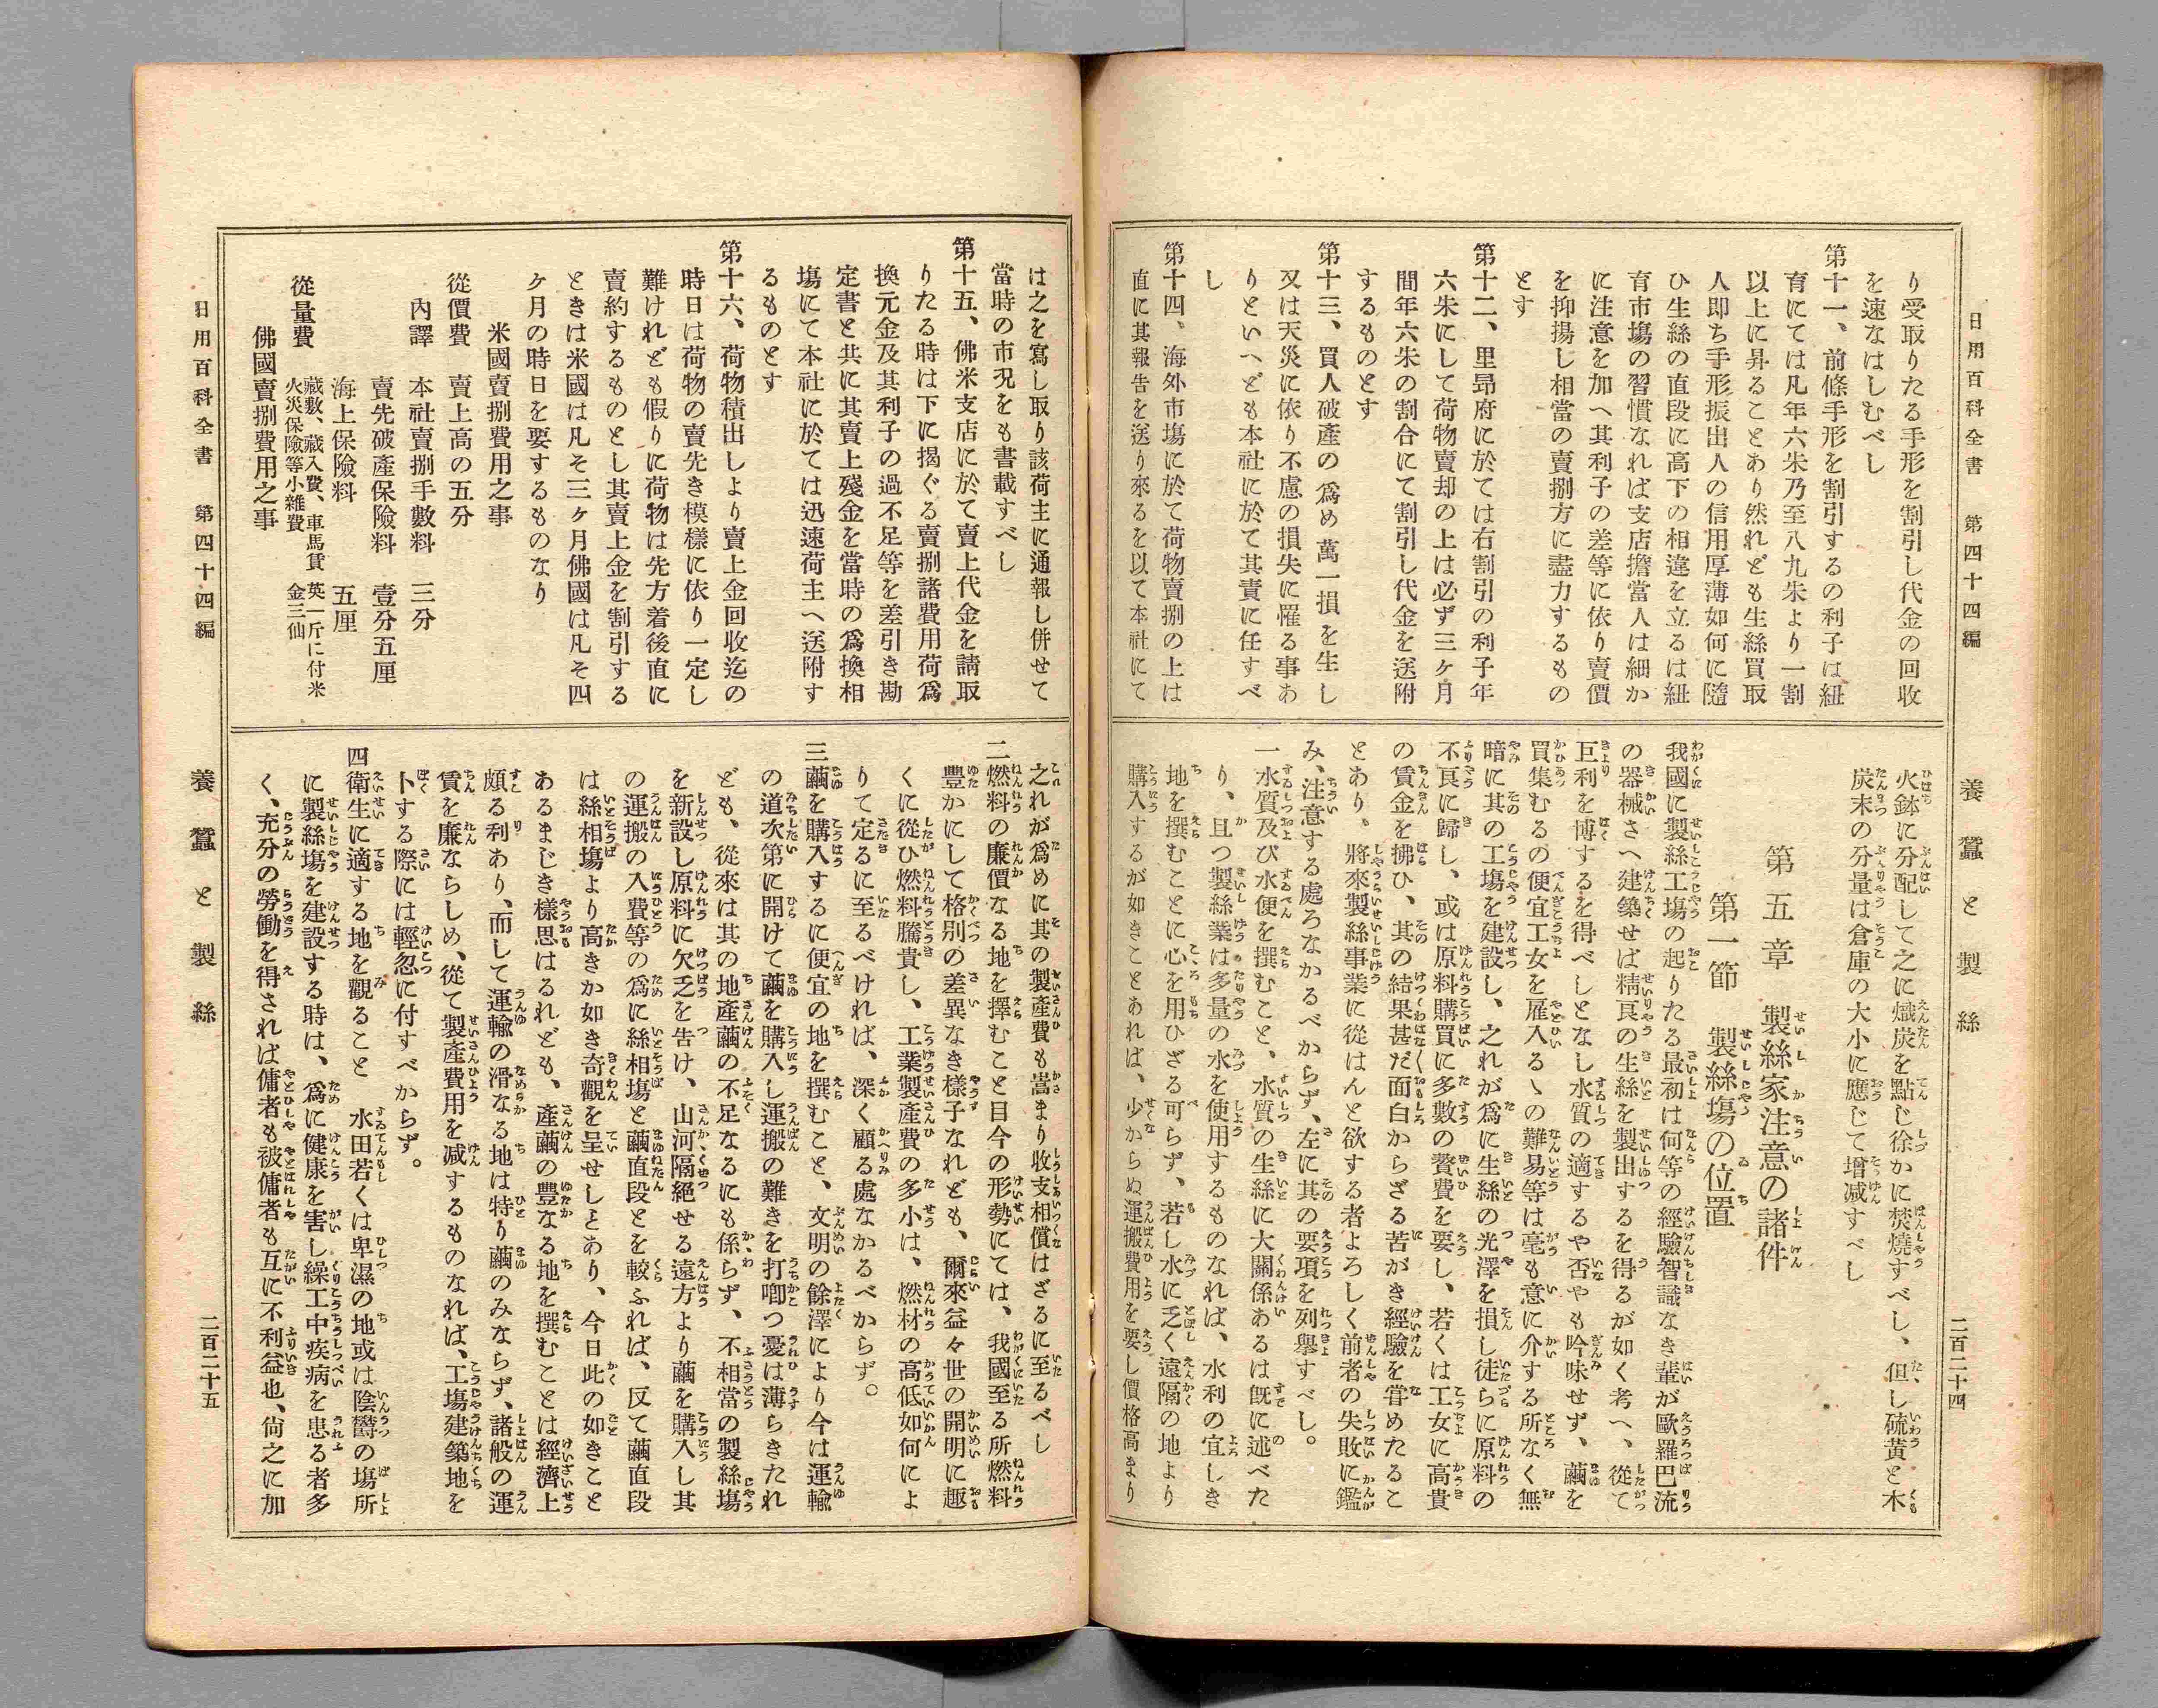 日用百科全書　第四十四編
養蠶と製絲
二百二十四
り受取りたる手形を割引し代金の回收
を速なはしむべし
第十一、前條手形を割引するの利子は紐
育にては凡年六朱乃至八九朱より一割
以上に昇ることあり然れども生絲買取
人即ち手形振出人の信用厚薄如何に隨
ひ生絲の直段に高下の相違を立るは紐
育市塲の習慣なれば支店擔當人は細か
に注意を加へ其利子の差等に依り賣價
を抑揚し相當の賣捌方に盡力するもの
とす
第十二、里昂府に於ては右割引の利子年
六朱にして荷物賣却の上は必ず三ヶ月
間年六朱の割合にて割引し代金を送附
するものとす
第十三、買人破產の爲め萬一損を生し
又は天災に依り不慮の損失に罹る事あ
りといへども本社に於て其責に任すべ
し
第十四、海外市塲に於て荷物賣捌の上は
直に其報告を送り來るを以て本社にて
火鉢に分配して之に熾炭を點じ徐かに焚燒すべし、但し硫黃と木
炭末の分量は倉庫の大小に應じて增減すべし
第五章　製絲家注意の諸件
第一節　製絲塲の位置
我國に製絲工塲の起りたる最初は何等の經驗智識なき輩が歐羅巴流
の器械さへ建築せば精良の生絲を製出するを得るが如く考へ、從て
巨利を博するを得べしとなし水質の適するや否やも吟味せず、繭を
買集むるの便宜工女を雇入るゝの難易等は毫も意に介する所なく無
暗に其の工塲を建設し、之れが爲に生絲の光澤を損し徒らに原料の
不良に歸し、或は原料購買に多數の費費を要し、若くは工女に高貴
の賃金を拂ひ、其の結果甚だ面白からざる苦がき經驗を甞めたるこ
とあり。將來製絲事業に從はんと欲する者よろしく前者の失敗に鑑
み、注意する處ろなかるべからず、左に其の要項を列擧すべし。
一水質及び水便を撰むこと、水質の生絲に大關係あるは旣に述べた
り、且つ製絲業は多量の水を使用するものなれば、水利の宜しき
地を撰むことに心を用ひざる可らず、若し水に乏く遠隔の地より
購入するが如きことあれば、少からぬ運搬費用を要し價格高まり
は之を寫し取り該荷主に通報し併せて
當時の市況をも書載すべし
第十五、佛米支店に於て賣上代金を請取
りたる時は下に揭ぐる賣捌諸費用荷爲
換元金及其利子の過不足等を差引き勘
定書と共に其賣上殘金を當時の爲換相
塲にて本社に於ては迅速荷主へ送附す
るものとす
第十六、荷物積出しより賣上金回收迄の
時日は荷物の賣先き模樣に依り一定し
難けれども假りに荷物は先方着後直に
賣約するものとし其賣上金を割引する
ときは米國は凡そ三ヶ月佛國は凡そ四
ヶ月の時日を要するものなり
米國賣捌費用之事
從價費　賣上高の五分
內譯　本社賣捌手數料　三分
賣先破產保險料　壹分五厘
海上保險料　五厘
從量費　藏敷、藏入費、車馬賃　英一斤に付米
火災保險等小雜費　金三仙
佛國賣捌費用之事
之れが爲めに其の製產費も嵩まり收支相償はざるに至るべし
二燃料の廉價なる地を擇むこと目今の形勢にては、我國至る所燃料
豐かにして格別の差異なき樣子なれども、爾來益々世の開明に趣
くに從ひ燃料騰貴し、工業製產費の多小は、燃材の高低如何によ
りて定るに至るべければ、深く顧る處なかるべからず。
三繭を購入するに便宜の地を撰むこと、文明の餘澤により今は運輸
の道次第に開けて繭を購入し運搬の難きを打喞つ憂は薄らきたれ
ども、從來は其の地產繭の不足なるにも係らず、不相當の製絲塲
を新設し原料に欠乏を告け、山河隔絕せる遠方より繭を購入し其
の運搬の入費等の爲に絲相塲と繭直段とを較ふれば、反て繭直段
は絲相塲より高きか如き奇觀を呈せしとあり、今日此の如きこと
あるまじき樣思はるれども、產繭の豐なる地を撰むことは經濟上
頗る利あり、而して運輸の滑なる地は特り繭のみならず、諸般の運
賃を廉ならしめ、從て製產費用を減するものなれば、工塲建築地を
卜する際には輕忽に付すべからず。
四衛生に適する地を觀ること　水田若くは卑濕の地或は陰鬱の塲所
に製絲塲を建設する時は、爲に健康を害し繰工中疾病を患る者多
く、充分の勞働を得されば傭者も被傭者も互に不利益也、尙之に加
日用百科全書　第四十四編
養蠶と製絲
二百二十五